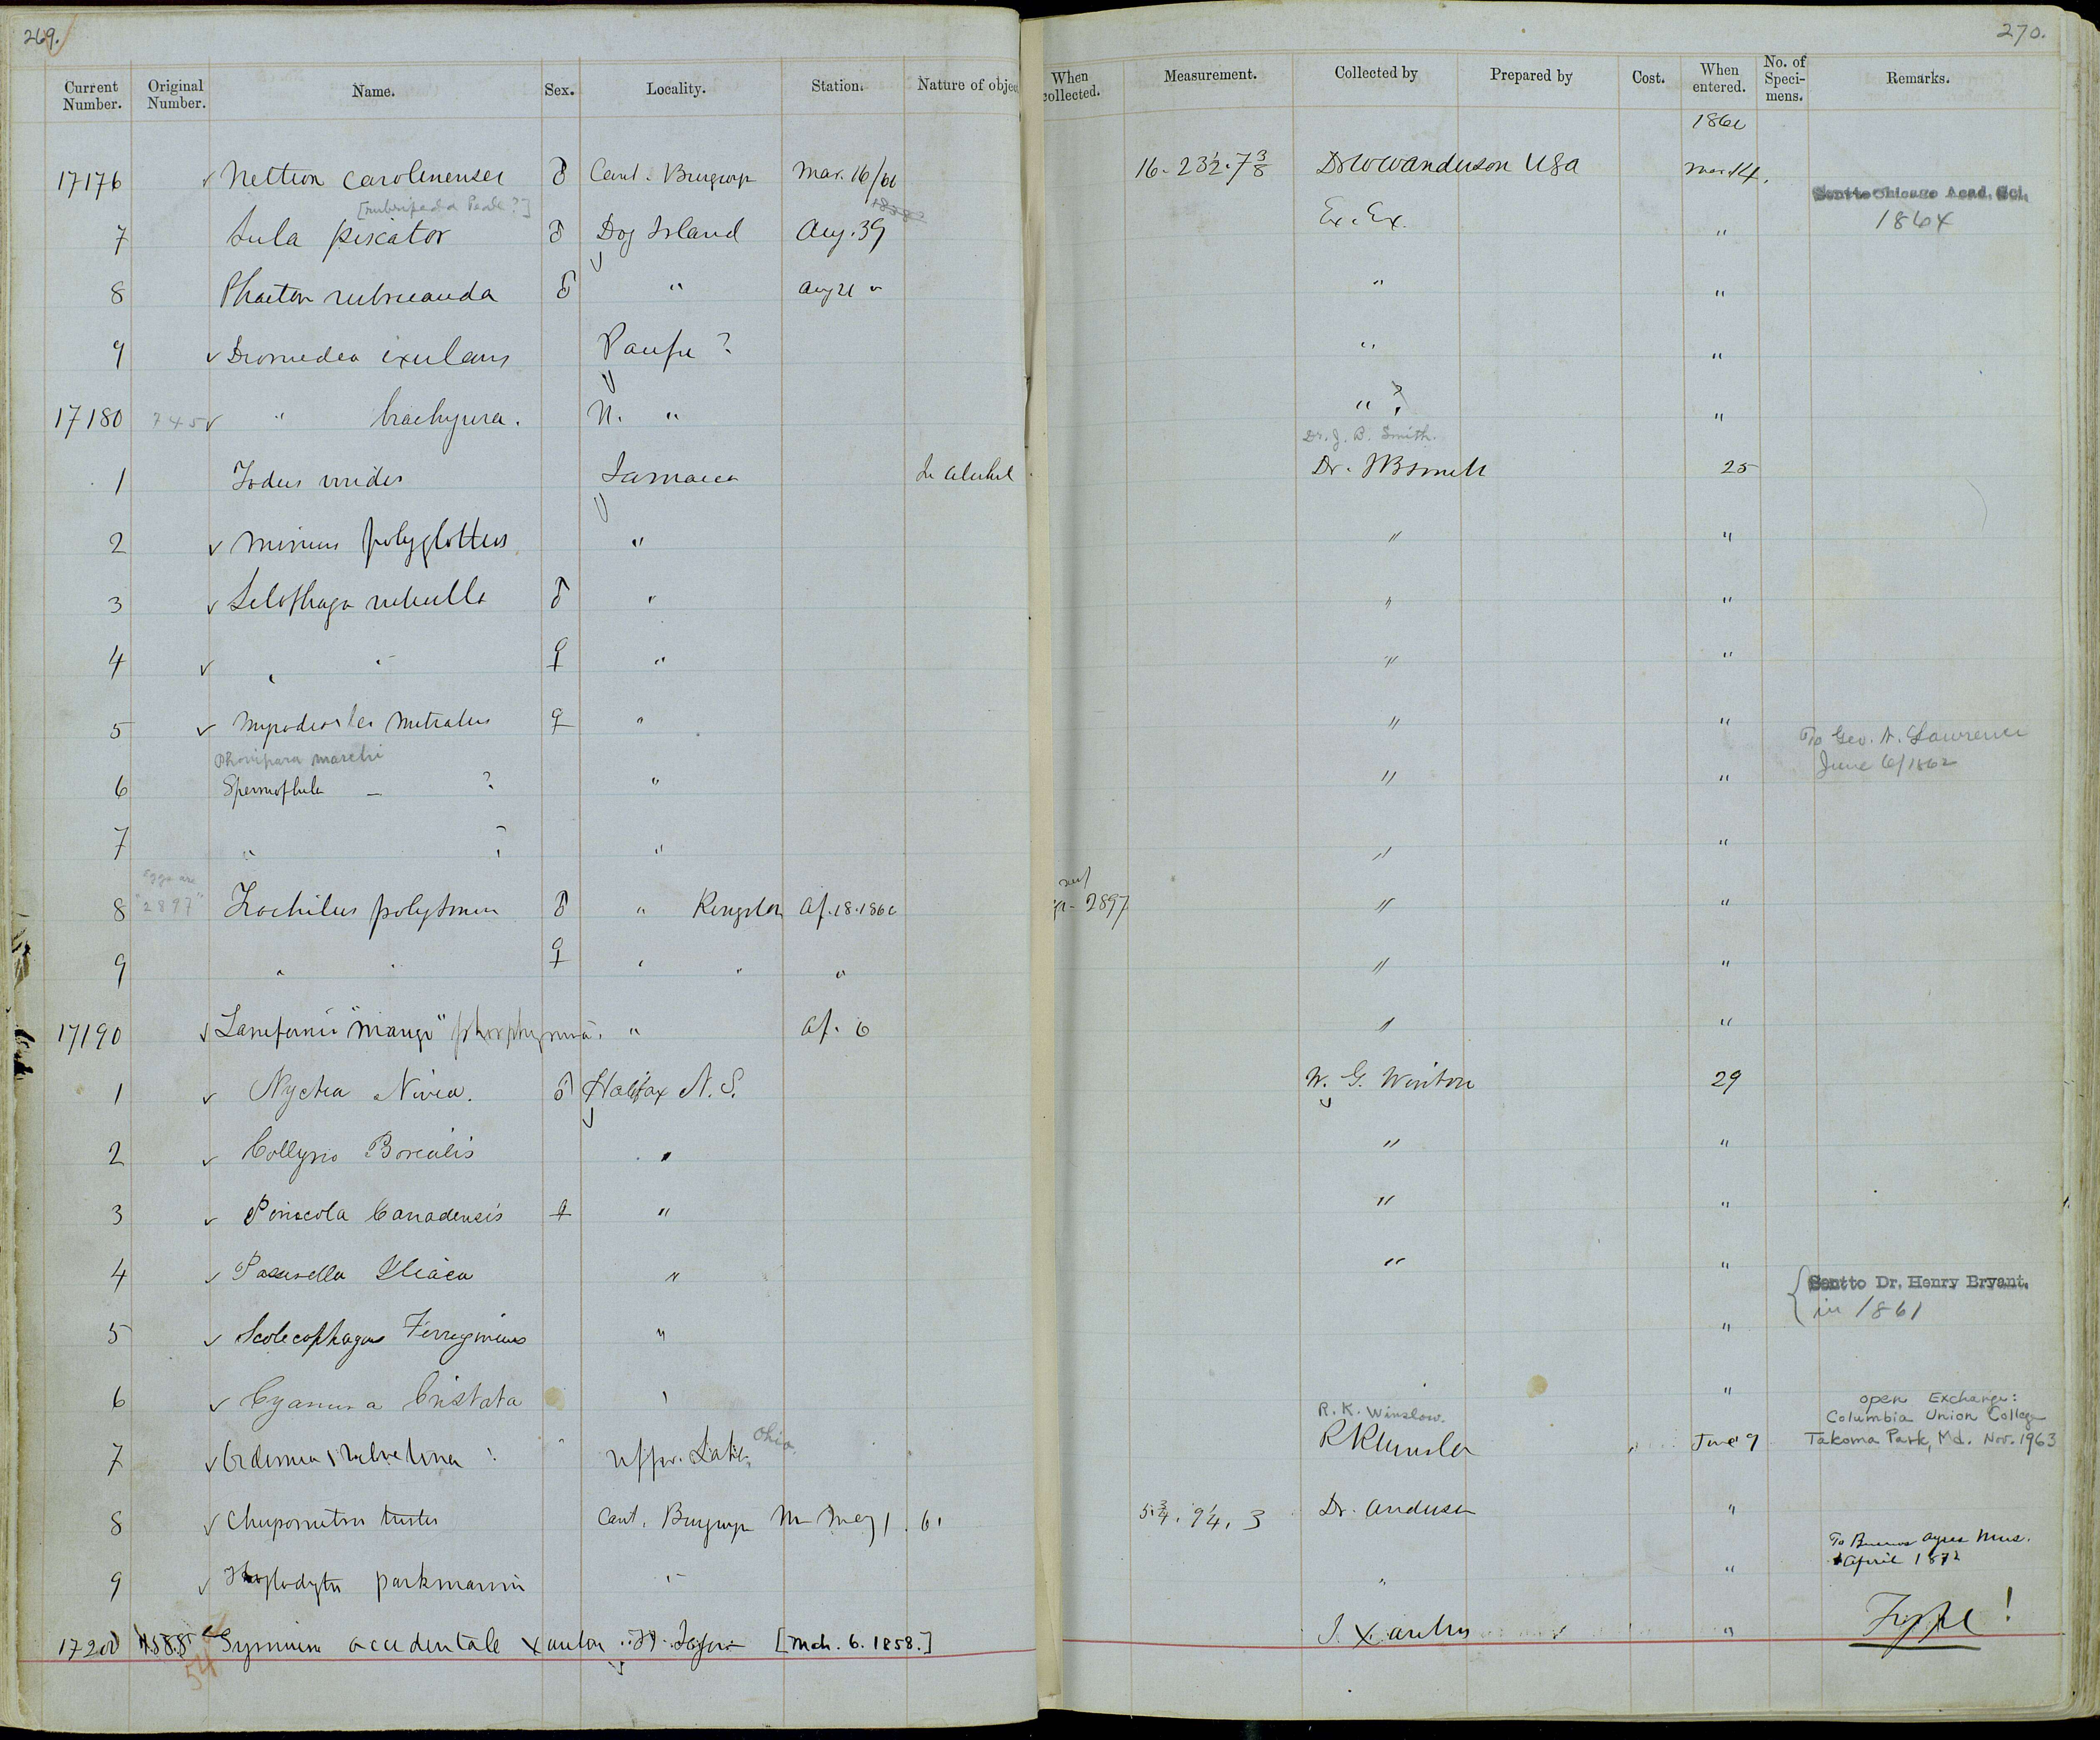 269.
270.
Current Number. Original Number. Name. Sex. Locality. Station. Nature of objec When collected. Measurement. Collected by Prepared by Cost. When entered. No. of Speci- mens. Remarks.
1861
17176 ✓ Nettion carolinensis ♂ Cant. Burgwyn Mar. 16/61 16. 23½. 7⅜ Dr W W Anderson USA March 14. Sent to Chicago Acad. Sci.
1864
[rubripeda Peale?] 1838?
7 Sula piscator ♂ Dog Island Aug. 39 Ex. Ex. "
8 Phaeton rubricauda ♂ " Aug 21 " " "
9 ✓ Diomedea exulans Pacific ? " "
17180 745 ✓ " brachyura. N. " " ? "
Dr. J. B. Smith.
1 Todus viridis Jamaica In alcohol Dr. JB Smith 25
2 ✓ Mimus polyglottus " " "
3 ✓ Setophaga ruticilla ♂ " " "
4 ✓ " " ♀ " " "
5 ✓ Myiodioctes mitratus ♀ " " "
Phonipara marchi To Geo. N. Lawrence
June 6/1862
6 Spermophila — ? " " "
7 " ? " " "
Eggs are nest
8 "2897" Trochilus polytmus ♂ " Kingston Ap. 18. 1861 2897 " "
9 " " ♀ " " " " "
17190 ✓ Lampornis "mango" porphyrura. " Ap. 6 " "
1 ✓ Nyctea Nivea. ♂ Halifax N. S. W. G. Winton 29
2 ✓ Collyrio Borealis " " "
3 ✓ Pinicola Canadensis ♀ " " "
4 ✓ Passerella Iliaca " " " { Sent to Dr. Henry Bryant.
in 1861
5 ✓ Scolecophagus Ferrugineus " "
6 ✓ Cyanura Cristata " "
R. K. Winslow. open Exchange:
Columbia Union College
7 ✓ Oidemia velvetina ? Upper Lakes Ohio RK Winslow June 9 Takoma Park, Md. Nov. 1963
8 ✓ Chrysomitris tristis Cant. Burgwyn May 1. 61 5¾. 9¼. 3 Dr. Anderson "
9 ✓ Troglodytes parkmanni " " " To Buenos Ayres Mus.
April 1872
17200 4588 Gymnium occidentale Xantus Ft. Tejon [Mch. 6. 1858.] J. Xantus " Type!
54